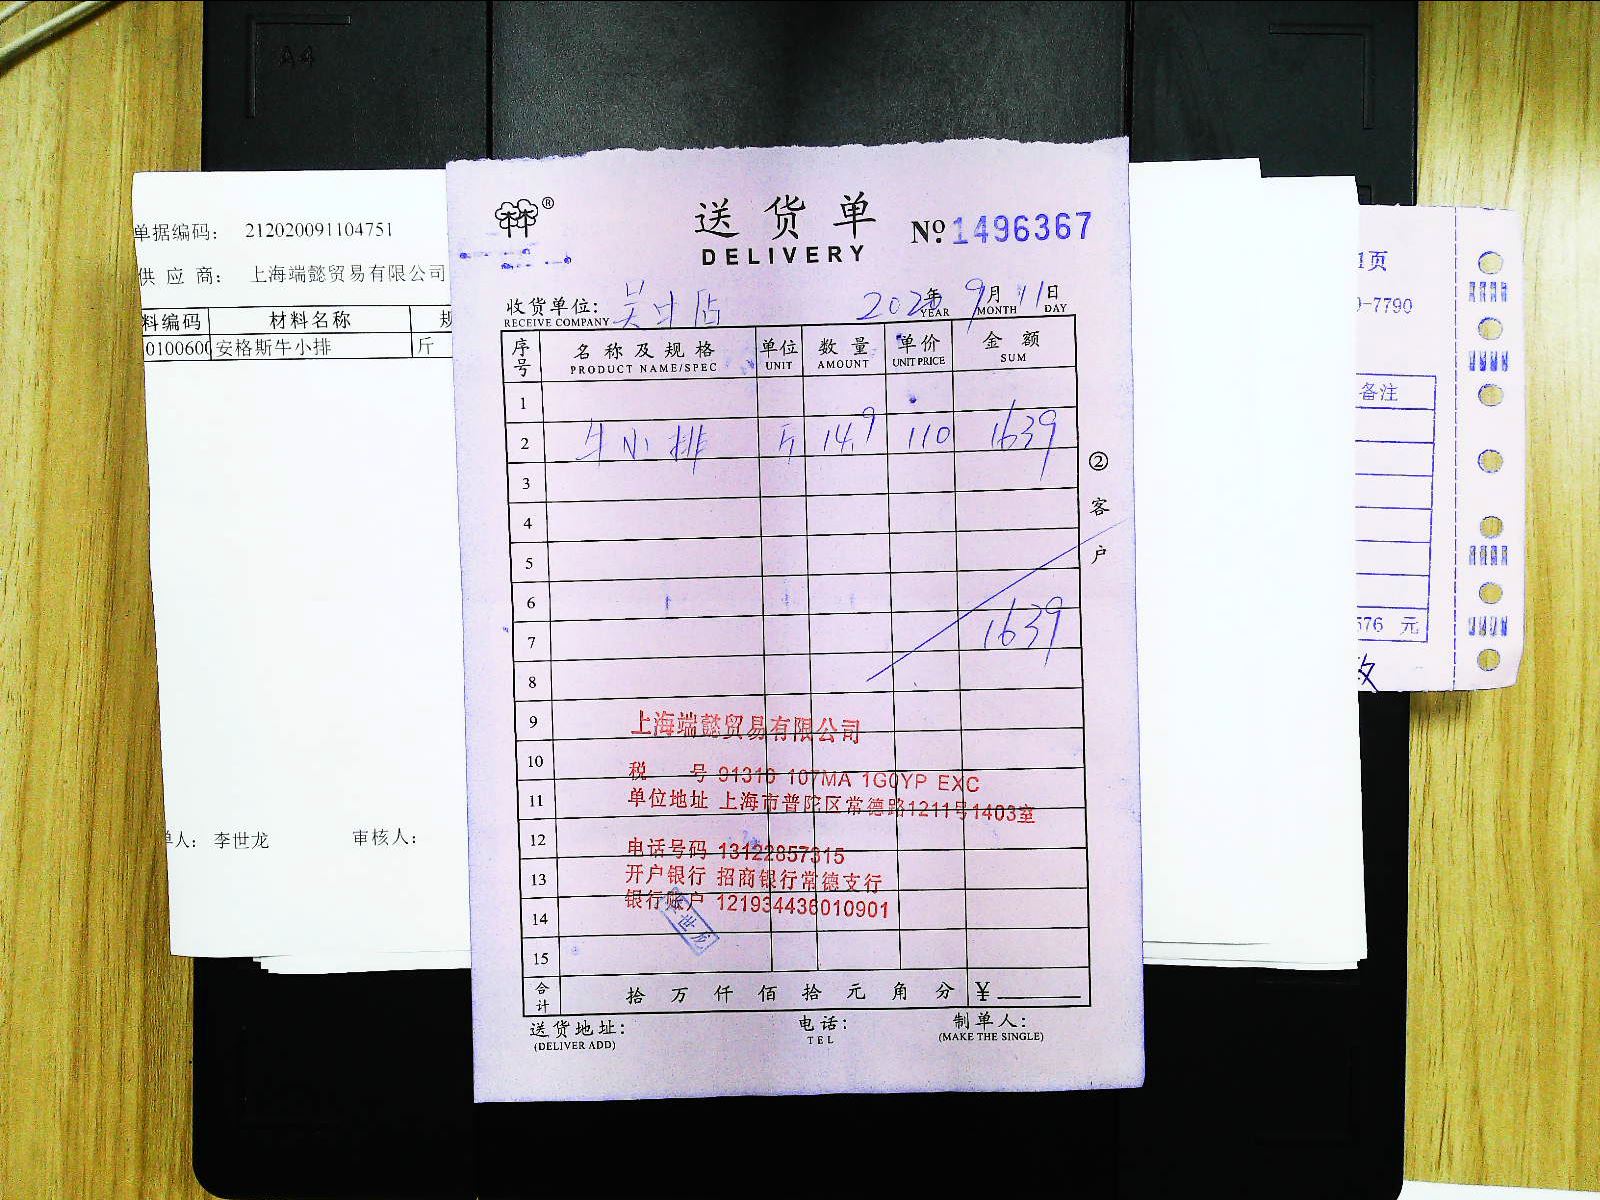 A4
单据编码: 212020091104751
供 应 商: 上海端懿贸易有限公司
料编码 材料名称 规
010060 安格斯牛小排 斤
单人: 李世龙 审核人:
®
送货单
DELIVERY
№ 1496367
收货单位:
RECEIVE COMPANY
2020年 9月 11日
YEAR MONTH DAY
序号 名称及规格 单位 数量 单价 金额
PRODUCT NAME/SPEC UNIT AMOUNT UNIT PRICE SUM
1
2 牛小排 斤 14.9 110 1639
3
4
5
6
7 1639
8
9
10
11
12
13
14
15
上海端懿贸易有限公司
税 号 91310 107MA 1G0YP EXC
单位地址 上海市普陀区常德路1211号1403室
电话号码 13122857315
开户银行 招商银行常德支行
银行账户 121934436010901
李世龙
合计 拾 万 仟 佰 拾 元 角 分 ¥
送货地址: 电话: 制单人:
(DELIVER ADD) TEL (MAKE THE SINGLE)
②客户
1页
-7790
备注
576 元